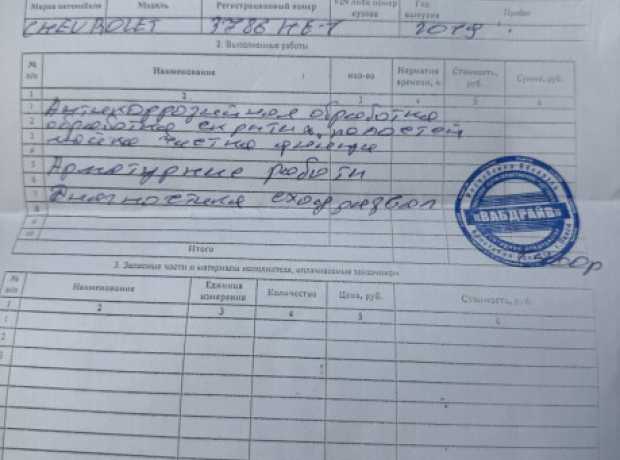 Марка автомобиля Модель Регистрационный номер VIN либо номер кузова Год выпуска Пробег
CHEVROLET 3786 HE-7 2019
2. Выполненные работы
№ п/п Наименование кол-во Норматив времени, ч Стоимость, руб. Сумма, руб.
1 2 3 4 5 6
1 Антикоррозийная обработка
2 обработка скрытых полостей
3 мойка частно днища
4
5 Арматурные работи
6
7 Диагностика сход развал
8
9
10
Итого
«ВАБДРАЙВ»
3. Запасные части и материалы исполнителя, оплачиваемые заказчиком
№ п/п Наименование Единица измерения Количество Цена, руб. Стоимость, руб.
1 2 3 4 5 6
1
2
3